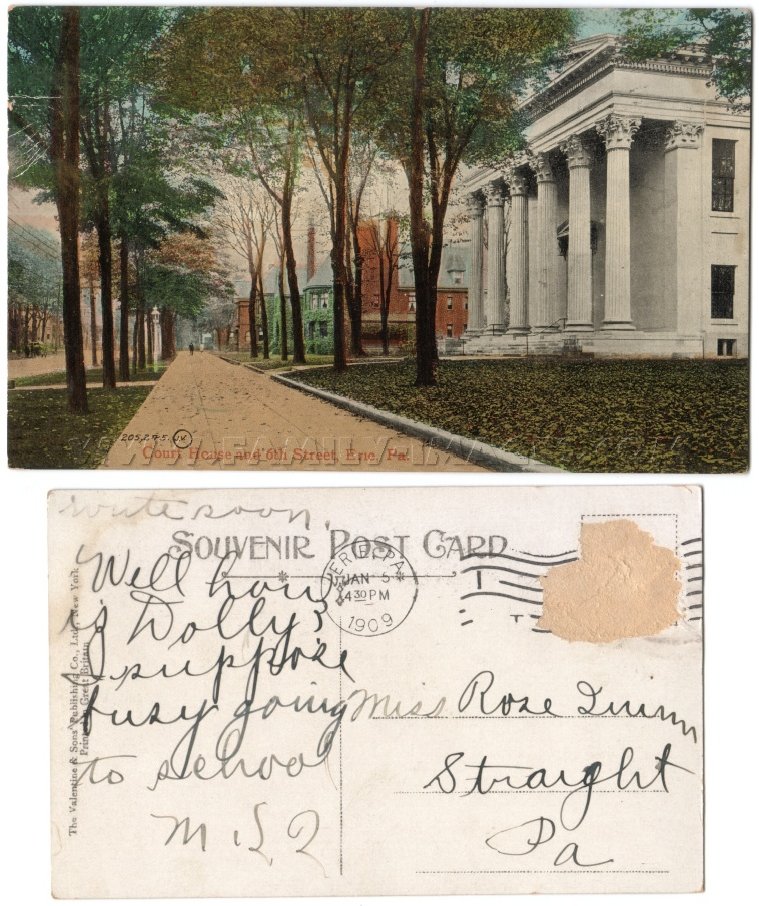 205,295. J.V.
Court House and 6th Street, Erie, Pa.
write soon.
SOUVENIR POST CARD
Well how
is Dolly?
I suppose
busy going
to school
ERIE, PA.
JAN 5
4 30 PM
1909
Miss Rose Quinn
Straight
Pa
The Valentine & Sons' Publishing Co., Ltd., New York
Printed in Great Britain